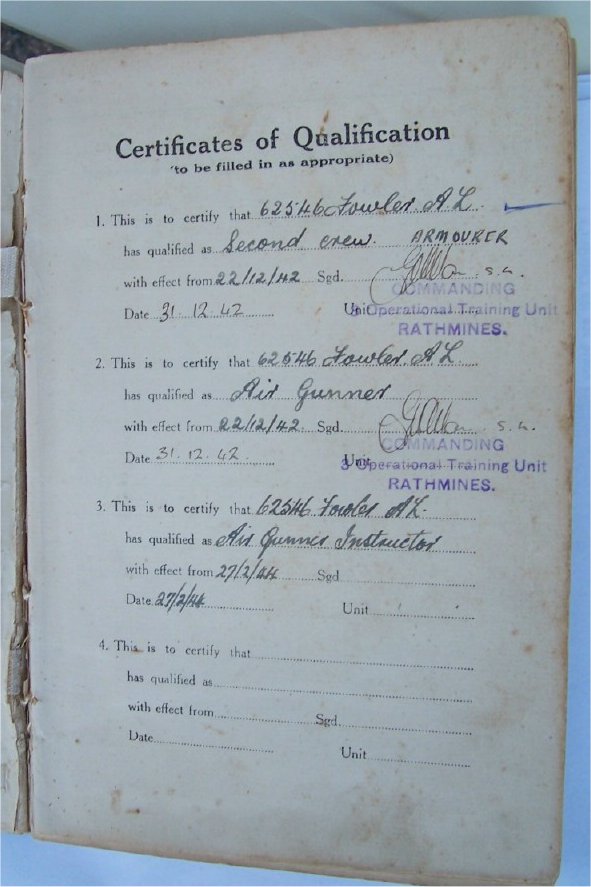 Certificates of Qualification
(to be filled in as appropriate)
1. This is to certify that 62546 Fowler A L
has qualified as Second crew. ARMOURER
with effect from 22/12/42 Sgd.
COMMANDING
Date 31. 12. 42 Unit 3 Operational Training Unit
RATHMINES.
2. This is to certify that 62546 Fowler A L
has qualified as Air Gunner
with effect from 22/12/42. Sgd.
COMMANDING
Date 31. 12. 42 Unit 3 Operational Training Unit
RATHMINES.
3. This is to certify that 62546 Fowler A L.
has qualified as Air Gunner Instructor
with effect from 27/2/44 Sgd
Date 27/2/44 Unit
4. This is to certify that
has qualified as
with effect from Sgd.
Date Unit